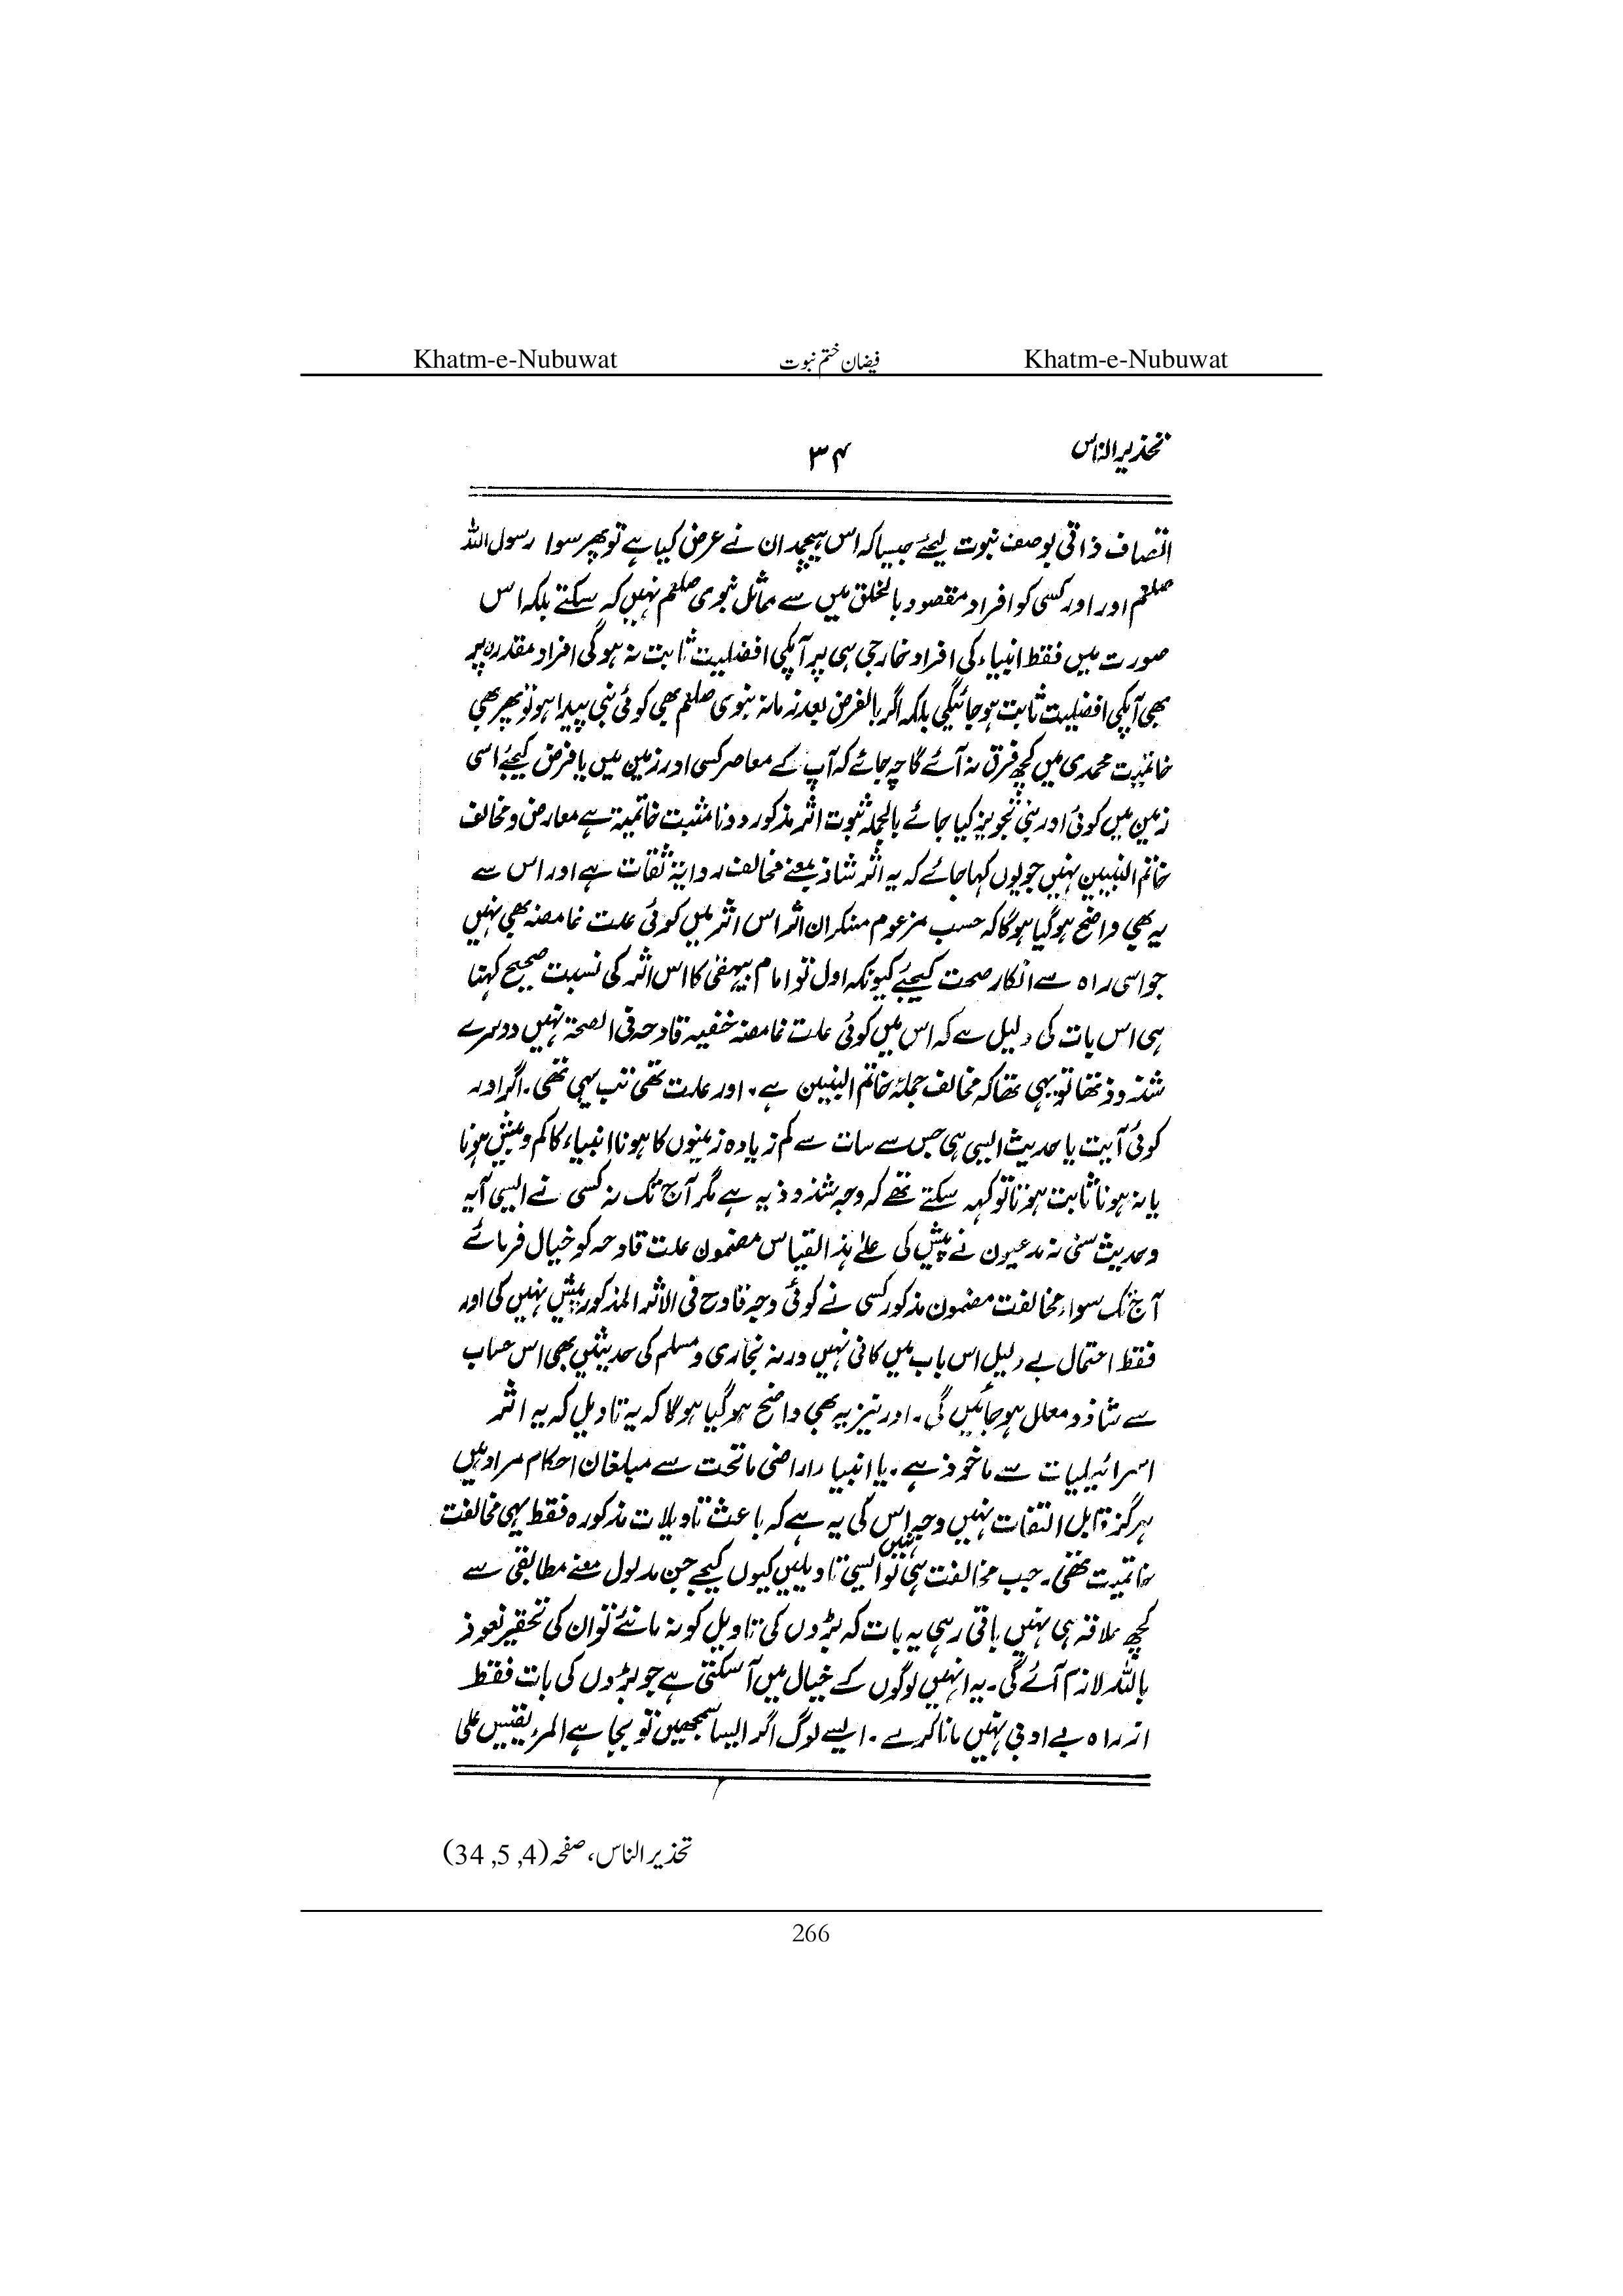 Khatm-e-Nubuwat فیضان ختم نبوت Khatm-e-Nubuwat
تحذیر الناس ۳۴
اتصاف ذاتی بوصف نبوت لیجئے جیسا کہ اس ہیچمدان نے عرض کیا ہے تو پھر سوا رسول اللہ
صلعم اور اور کسی کو افراد مقصود بالخلق میں سے مماثل نبوی صلعم نہیں کہ سکتے بلکہ اس
صورت میں فقط انبیاء کی افراد خارجی ہی پر آپکی افضلیت ثابت نہ ہو گی افراد مقدرہ پر
بھی آپکی افضلیت ثابت ہو جائیگی بلکہ اگر بالفرض بعد زمانہ نبوی صلعم بھی کوئی نبی پیدا ہو تو پھر بھی
خاتمیت محمدی میں کچھ فرق نہ آئے گا چہ جائے کہ آپ کے معاصر کسی اور زمین میں یا فرض کیجئے اسی
زمین میں کوئی اور نبی تجویز کیا جائے بالجملہ ثبوت اثر مذکور دونا مثبت خاتمیۃ ہے معارض و مخالف
خاتم النبیین نہیں جو یوں کہا جائے کہ یہ اثر شاذ بمعنے مخالف روایۃ ثقات ہے اور اس سے
یہ بھی واضح ہو گیا ہوگا کہ حسب مزعوم منکران اثر اس اثر میں کوئی علت غامضہ بھی نہیں
جو اسی راہ سے انکار صحت کیجئے کیونکہ اول تو امام بیہقی کا اس اثر کی نسبت صحیح کہنا
ہی اس بات کی دلیل ہے کہ اس میں کوئی علت غامضہ خفیہ قادحہ فی الصحۃ نہیں دوسرے
شذوذ تھا تو یہی تھا کہ مخالف جملۂ خاتم النبیین ہے۔ اور علت تھی تب یہی تھی۔ اگر اور
کوئی آیت یا حدیث ایسی ہی جس سے سات سے کم زیادہ زمینوں کا ہونا انبیاء کا کم و بیش ہونا
یا نہ ہونا ثابت ہوتا تو کہہ سکتے تھے کہ وجہ شذوذ یہ ہے مگر آج تک نہ کسی نے ایسی آیہ
و حدیث سنی نہ مدعیون نے پیش کی علیٰ ہذا القیاس مضمون علت قادحہ کو خیال فرمائے
آج تک سواء مخالفت مضمون مذکور کسی نے کوئی وجہ قادح فی الاثر المذکور پیش نہیں کی اور
فقط احتمال بے دلیل اس باب میں کافی نہیں ورنہ بخاری و مسلم کی حدیثیں بھی اس حساب
سے شاذ و معلل ہو جائیں گی۔ اور نیز یہ بھی واضح ہو گیا ہوگا کہ یہ تاویل کہ یہ اثر
اسرائیلیات سے ماخوذ ہے۔ یا انبیا راراضی ماتحت سے مبلغان احکام مراد ہیں
ہرگز قابل التفات نہیں وجہ اس کی یہ ہے کہ باعث تاویلات مذکورہ فقط یہی مخالفت
خاتمیت تھی۔ جب مخالفت ہی نہیں تو ایسی تاویلیں کیوں کیجے جن مدلول معنے مطابقی سے
کچھ علاقہ ہی نہیں باقی رہی یہ بات کہ بڑوں کی تاویل کو نہ مانئے تو ان کی تحقیر نعوذ
باللہ لازم آئے گی۔ یہ انہیں لوگوں کے خیال میں آ سکتی ہے جو بڑوں کی بات فقط
از راہ بے ادبی نہیں مانا کرتے۔ ایسے لوگ اگر ایسا سمجھیں تو بجا ہے المرء یقیس علی
تحذیر الناس، صفحہ (4, 5, 34)
266